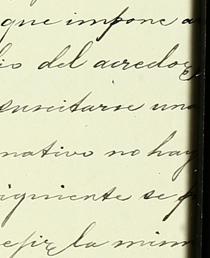 que impone a
io del acredo
suscitarse una
nativo no hay
iguiente se
la mism